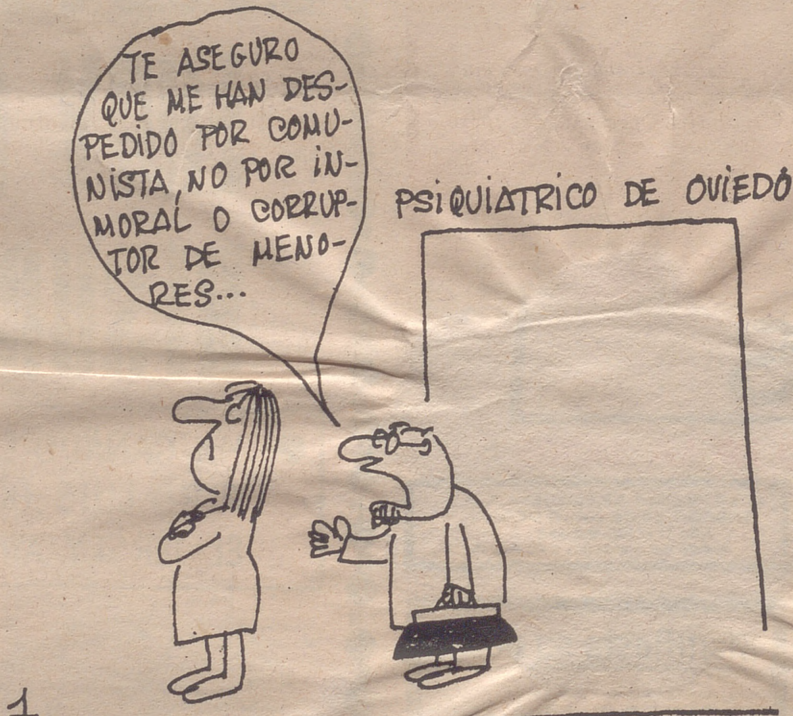 TE ASEGURO
QUE ME HAN DES-
PEDIDO POR COMU-
NISTA, NO POR IN-
MORAL O CORRUP-
TOR DE MENO-
RES...
PSIQUIATRICO DE OVIEDO
1